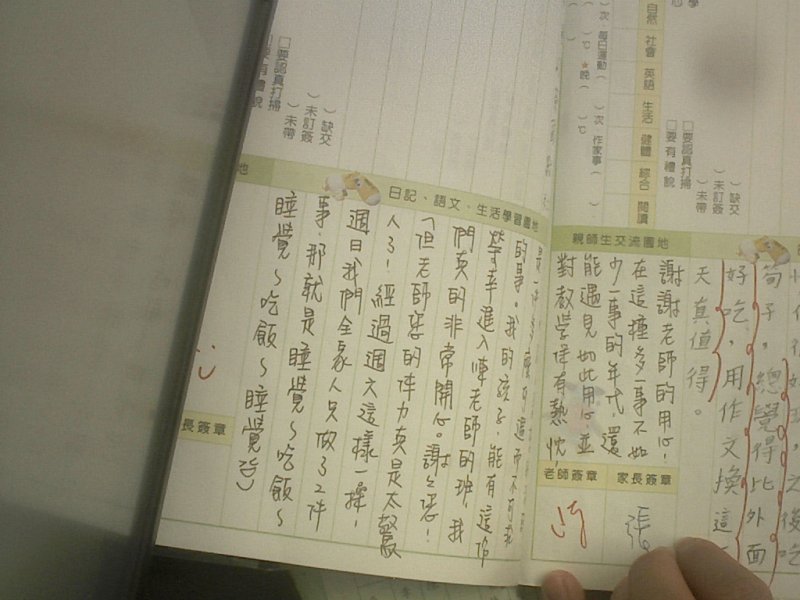 自然
社會
英語
生活
健體
綜合
閱讀
次·每日運動(
)次 作家事(
℃ ★晚(
)
□要認真打掃
□要有禮貌
)缺交
)未訂簽
)未帶
親師生交流園地
筍子,總覺得比外面
好吃,用作文換這
天真值得。
謝謝老師的用心,
在這種多一事不如
少一事的年代,還
能遇見如此用心並
對教學懷有熱忱,
老師簽章
家長簽章
張
□要認真打掃
□要有禮貌
)缺交
)未訂簽
)未帶
日記、語文、生活學習園地
的事。我的孩子能有這份
榮幸進入陳老師的班,我
們真的非常開心。謝謝您!
(但老師您的体力真是太驚
人了!經過週六這樣一操,
週日我們全家人只做了2件
事,那就是睡覺~吃飯~
睡覺~吃飯~睡覺
長簽章
地